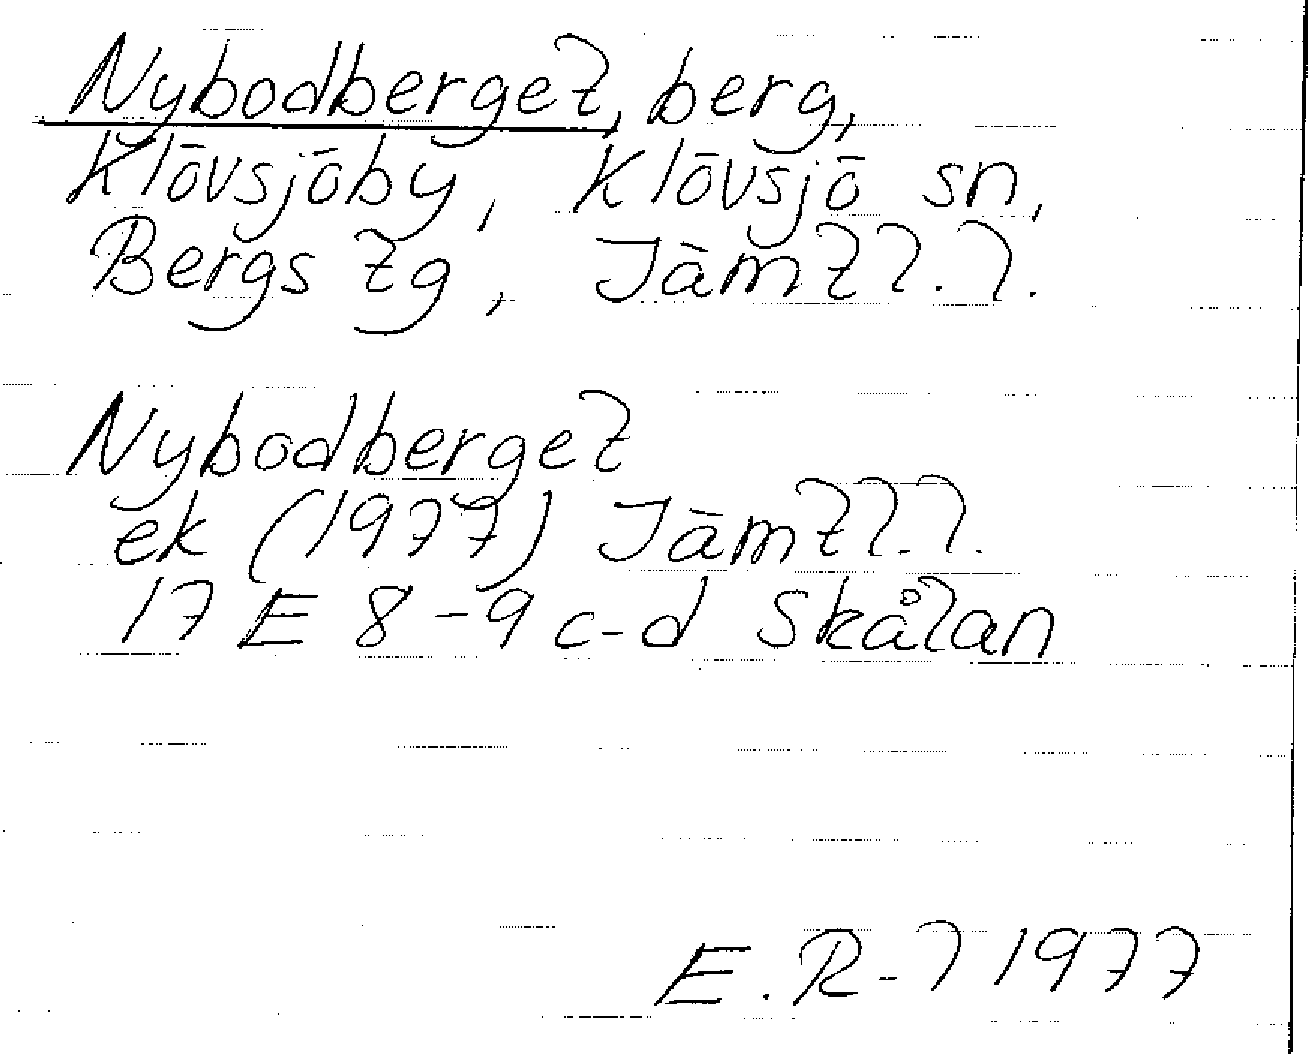 Nybodberget, berg,
Klövsjöby, Klövsjö sn,
Bergs tg, Jämtl.l.
Nybodberget
ek (1977) Jämtl.l.
17 E 8-9 c-d Skålan
E.R-l 1977